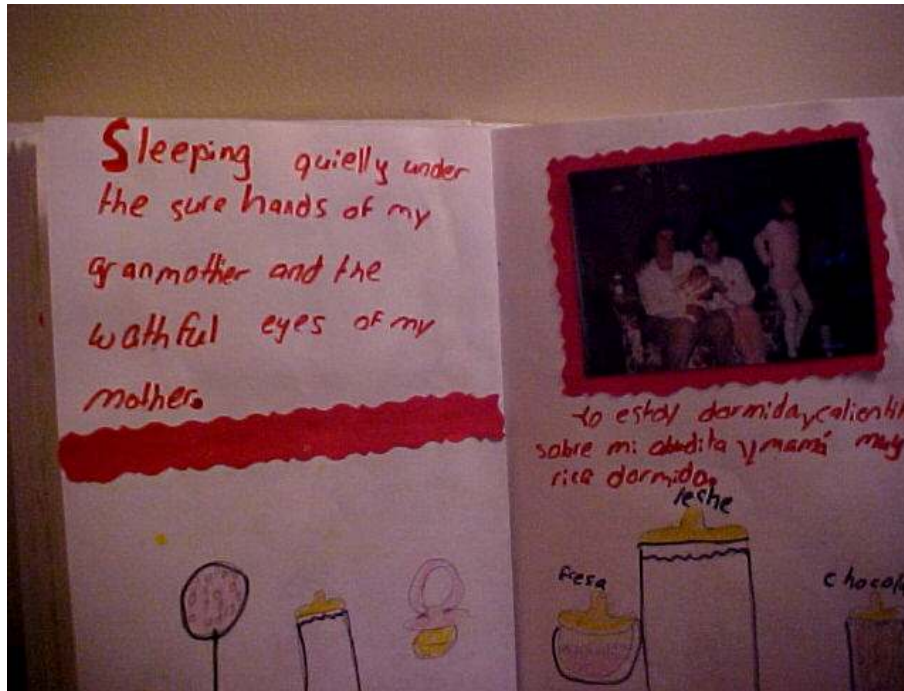 Sleeping quielly under
the sure hands of my
granmother and the
wathful eyes of my
mother.
Yo estoy dormida y calientit
sobre mi abudita y mamá muy
rica dormida.
leche
fresa
chocola